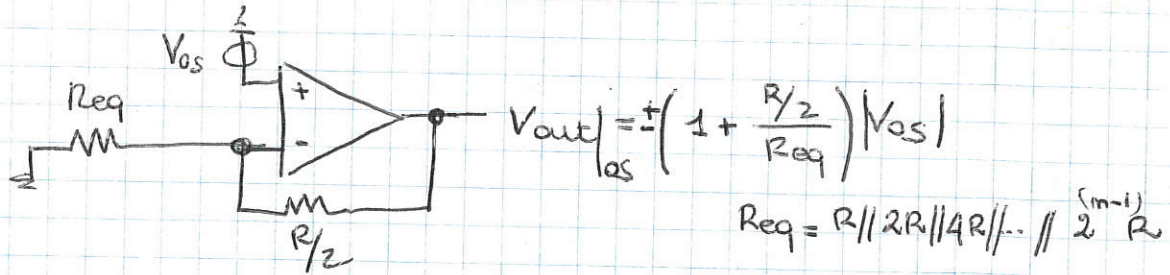 Vos
Req
+
-
R/2
Vout|os = ±(1 + (R/2)/Req)|Vos|
Req = R//2R//4R//..//2^(n-1)R